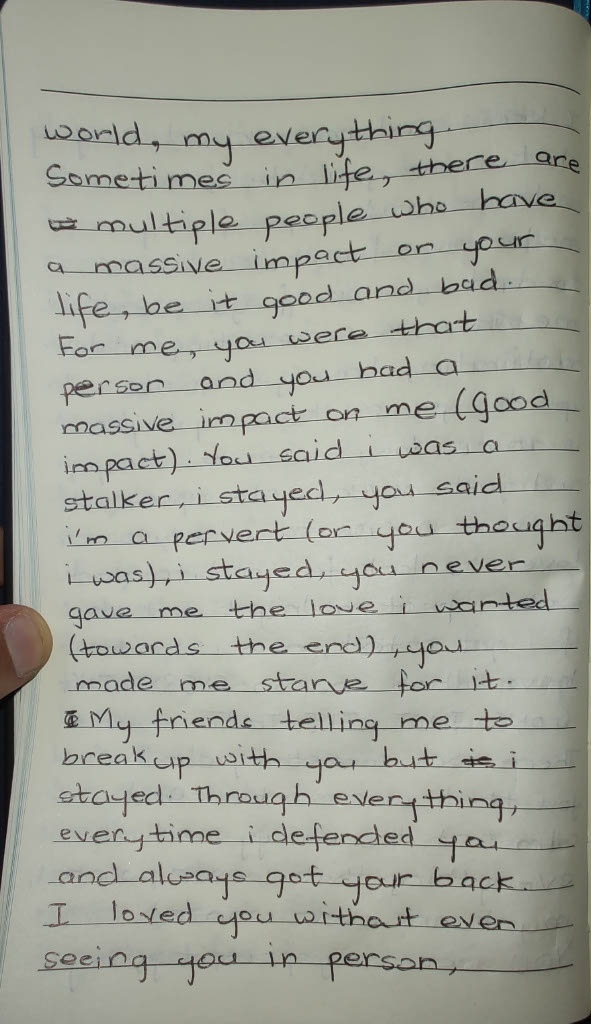 world, my everything.
Sometimes in life, there are
multiple people who have
a massive impact on your
life, be it good and bad.
For me, you were that
person and you had a
massive impact on me (good
impact). You said i was a
stalker, i stayed, you said
i'm a pervert (or you thought
i was), i stayed, you never
gave me the love i wanted
(towards the end), you
made me starve for it.
My friends telling me to
break up with you, but i
stayed. Through everything,
everytime i defended you
and always got your back.
I loved you without even
seeing you in person,